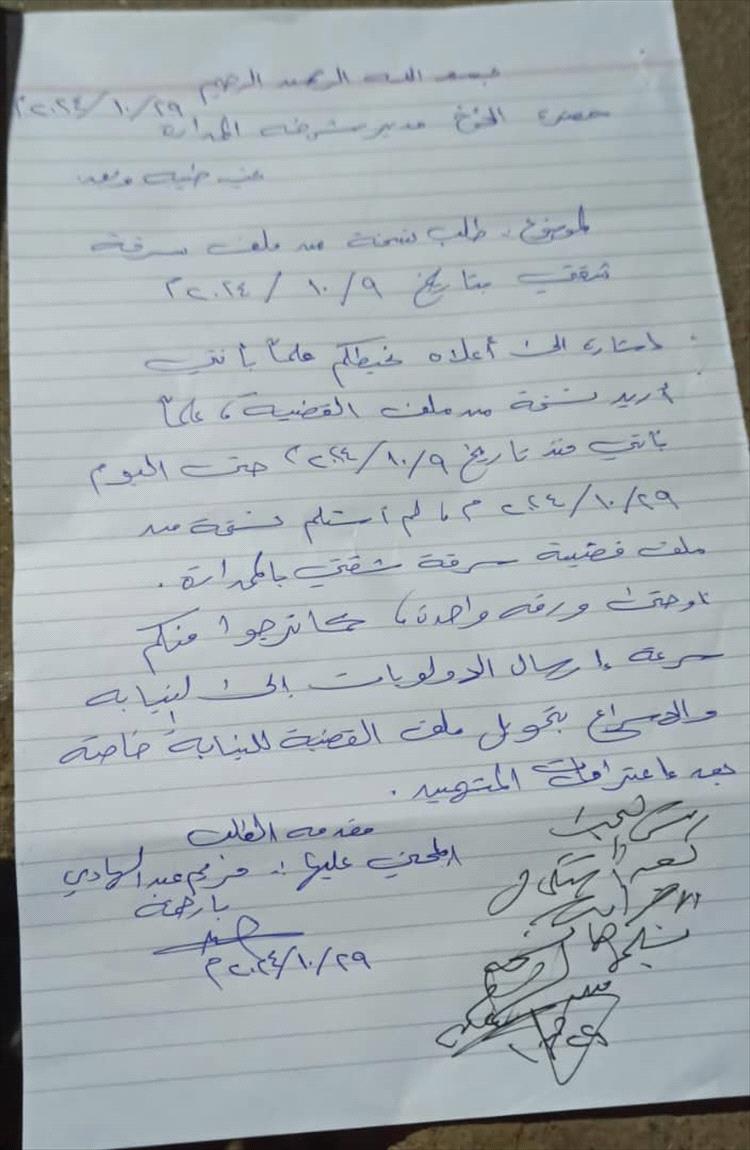 بسم الله الرحمن الرحيم
٢٠٢٤/١٠/٢٩م
حضرة الأخ مدير شرطة الجدارة
بعد
الموضوع: طلب نسخة من ملف سرقة
شقتي بتاريخ ٢٠٢٤/١٠/٩م
إشارة إلى أعلاه نحيطكم علماً بأنني
أريد نسخة من ملف القضية، علماً
بأنني منذ تاريخ ٢٠٢٤/١٠/٩م حتى اليوم
٢٠٢٤/١٠/٢٩م، لم أستلم نسخة من
ملف قضية سرقة شقتي بالجدارة.
أو حتى ورقة واحدة، كما نرجوا منكم
سرعة إرسال الأولويات إلى النيابة
والإسراع بتحويل ملف القضية للنيابة خاصة
بعد اعترافات المتهمين.
مقدمة الطلب
المجني عليها: مريم عبدالهادي
بارحمة
٢٠٢٤/١٠/٢٩م